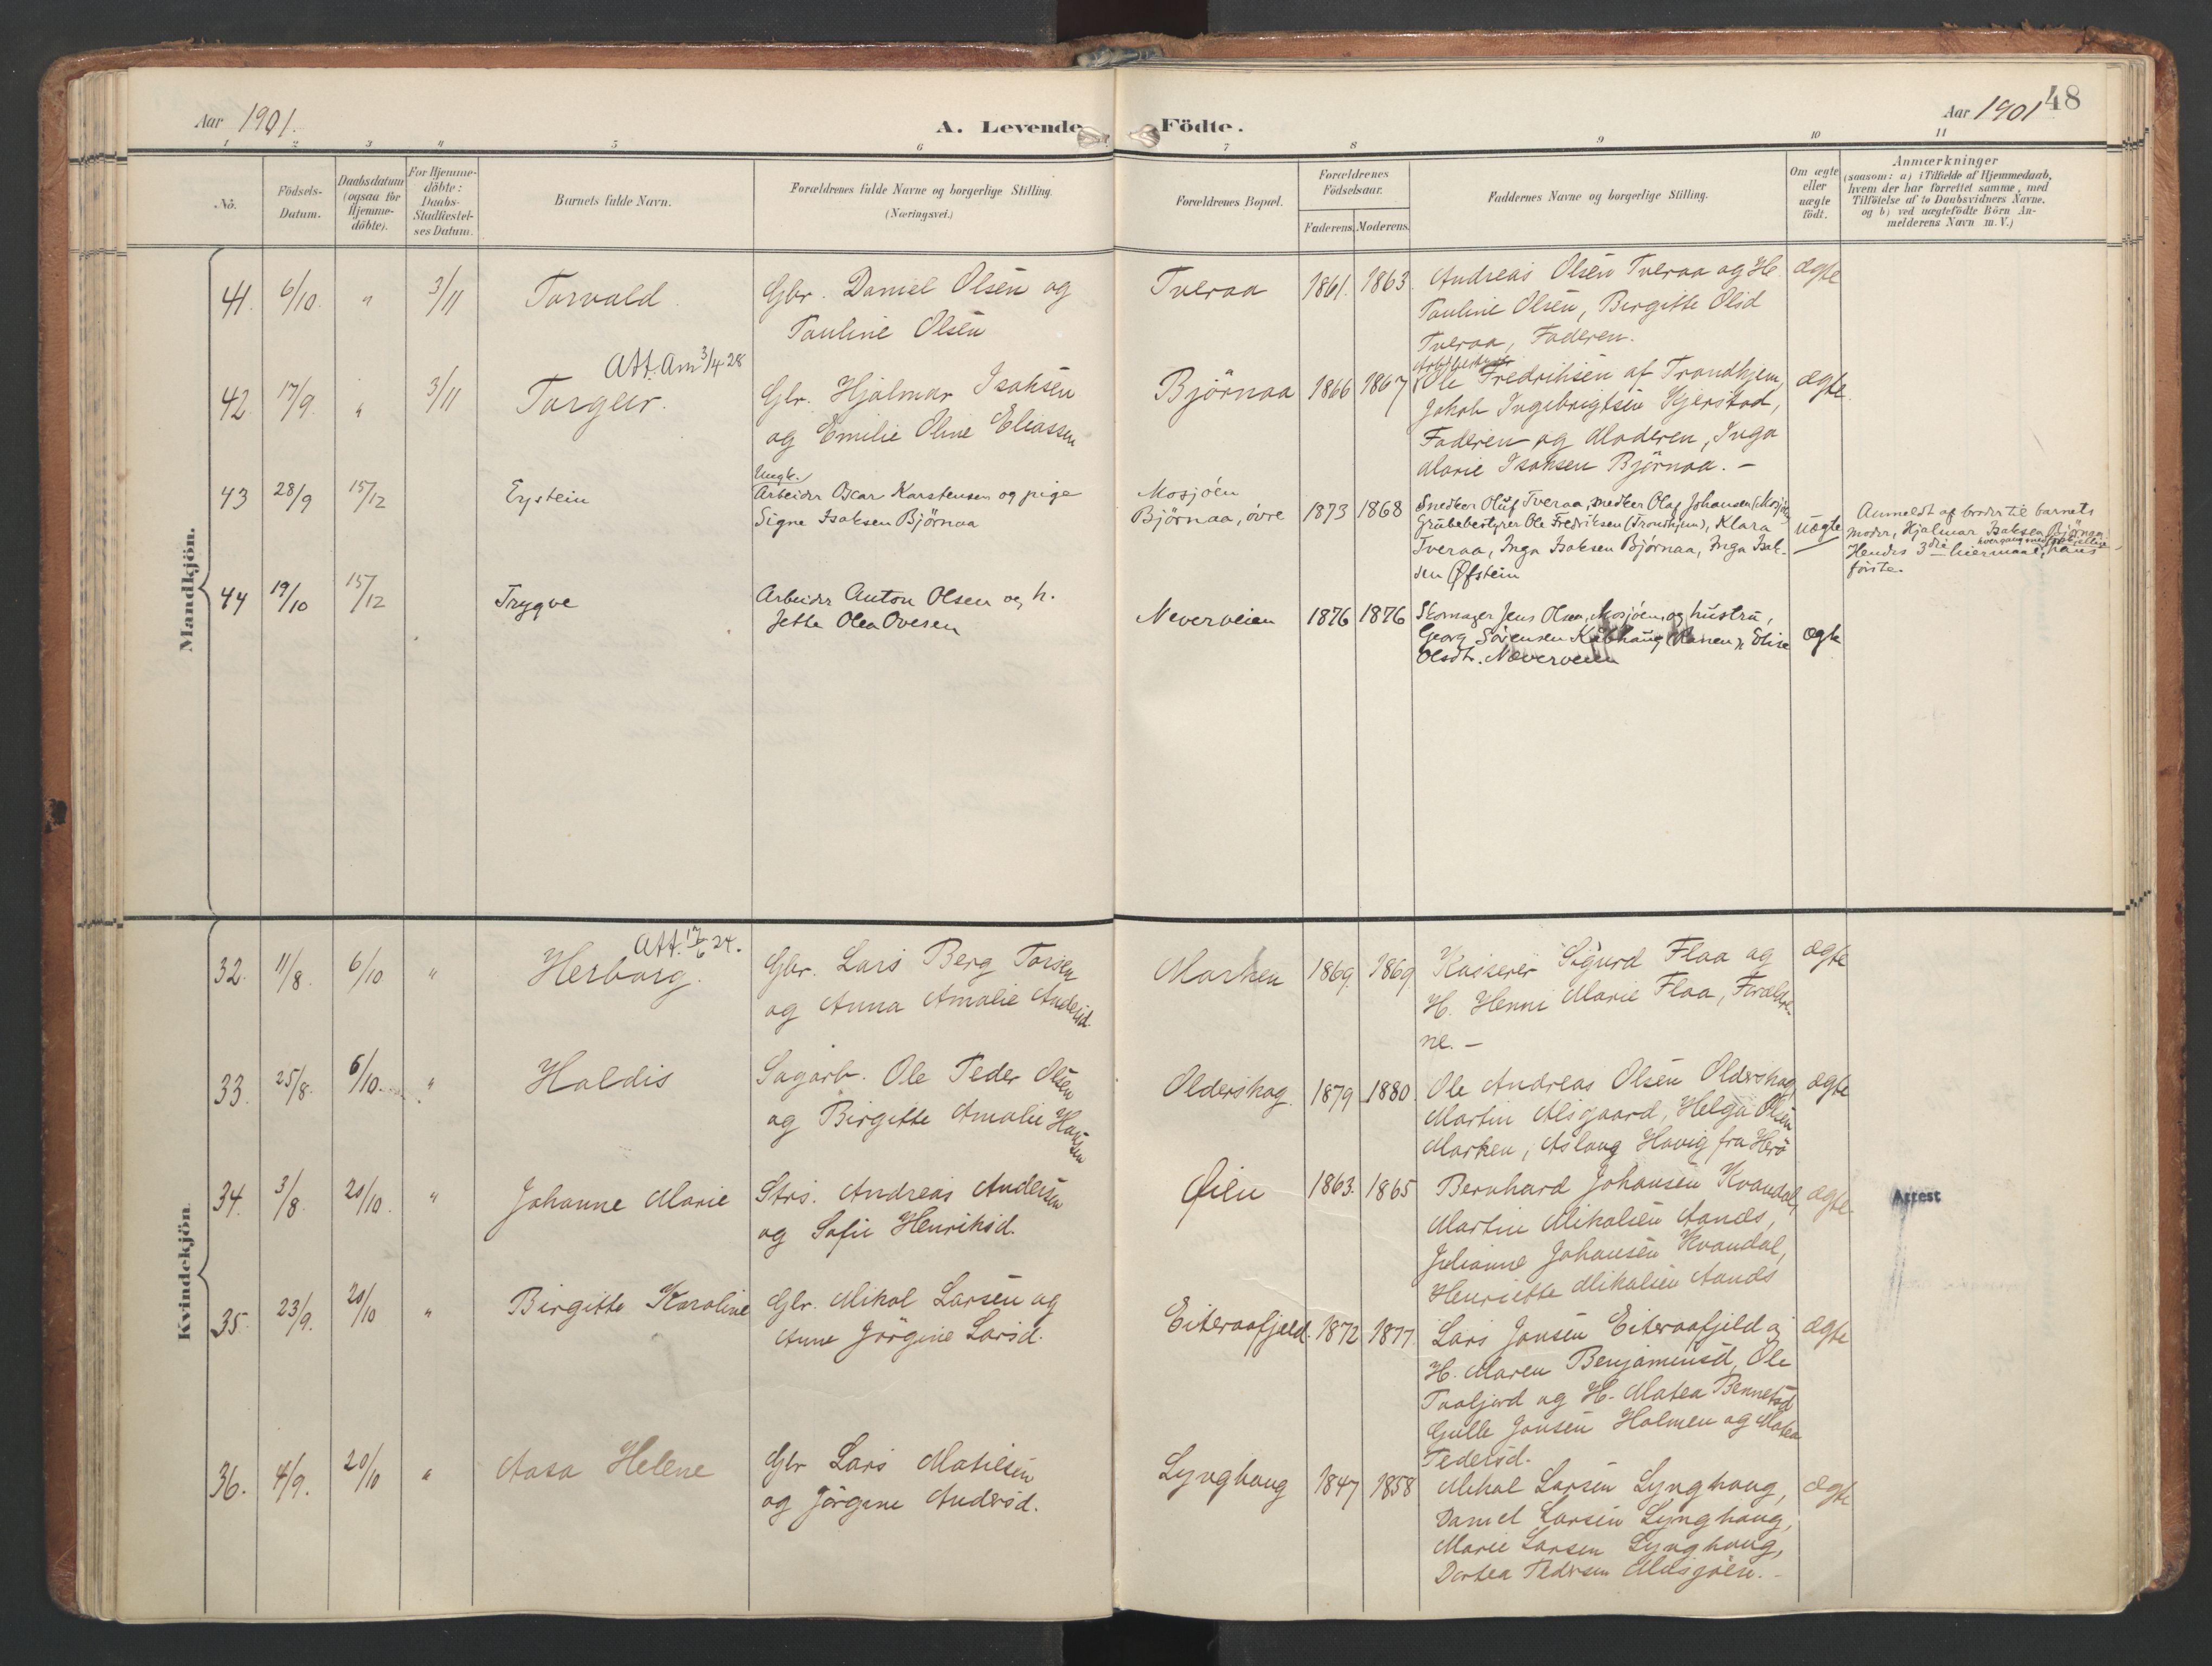 Aar 1901.
A. Levende Födte.
Aar 1901
48
1 2 3 4 5 6 7 8 9 10 11
No. Födsels-Datum. Daabsdatum (ogsaa for Hjemme-döbte). For Hjemme-döbte: Daabs-Stadfæstel-ses Datum. Barnets fulde Navn. Forældrenes fulde Navne og borgerlige Stilling. (Næringsvei.) Forældrenes Bopæl. Forældrenes Födselsaar. Faderens. Moderens. Faddernes Navne og borgerlige Stilling. Om ægte eller uægte födt. Anmærkninger (saasom: a) i Tilfælde af Hjemmedaab, hvem der har forrettet samme, med Tilföielse af to Daabsvidners Navne, og b) ved uægtefödte Börn An-melderens Navn m. V.)
Mandkjön.
41. 6/10. " 3/11 Torvald. Gbr. Daniel Olsen og Tveraa 1861. 1863. Andreas Olsen Tveraa og H. ægte
Pauline Olsen Pauline Olsen, Birgitte Olsd
Tveraa, Faderen.
Att. Am 3/4-28
42. 17/9. " 3/11 Torgeir. Gbr. Hjalmar Isaksen Björnaa 1866 1867 Ole Fredriksen af Trondhjem, ægte.
og Emilie Oline Eliassen Jakob Ingebrigtsen Kjerstad,
Faderen og Moderen, Inga
Marie Isaksen Björnaa. —
Ungk.
43 28/9 15/12 Eystein Arbeider Oscar Karstensen og pige Mosjöen
Signe Isaksen Björnaa Björnaa, övre 1873 1868 Snedker Oluf Tveraa, snedker Olaf Johansen (Mosjöen)
Grubebestyrer Ole Fredriksen (Trondhjem), Klara uægte
Tveraa, Inga Isaksen Björnaa, Inga Isak-
sen Øfstein
Anmeldt af broder til barnets
moder, Hjalmar Isaksen Björnaa.
Hendes 3die leiermaal, hans
förste.
44 19/10 15/12 Trygve Arbeider Anton Olsen og h. Neverveien 1876 1876 Skomager Jens Olsen, Mosjöen, og hustru,
Jette Olea Ovesen Georg Sörensen (Ranen), Elise ægte
Olsdt. Næverveien
Kvindekjön.
Att. 17/6 24.
32. 11/8. 6/10 " Herborg. Gbr. Lars Berg Torsen Marken 1869. 1869 Kasserer Sigurd Flaa og ægte
og Anna Amalie Andersd. H. Henni Marie Flaa, Forældre-
ne. —
33. 25/8. 6/10. " Haldis Sagarb. Ole Peder Olsen Olderskog. 1879 1880. Ole Andreas Olsen Olderskog, ægte
og Birgitte Amalie Hansen Martin Alsgaard, Helga Olsen
Marken, Aslaug Havig fra Herö
34. 3/8. 20/10. " Johanne Marie Strs. Andreas Andersen Øien 1863. 1865 Bernhard Johansen Kvandal, ægte. Attest
og Sofie Henriksd. Martin Mikalsen Aanes,
Julianne Johansen Kvandal,
Henriette Mikalsen Aanes
35. 23/9. 20/10 " Birgitte Karoline Gbr. Mikal Larsen og Eiteraafjeld. 1872 1877. Lars Jonsen Eiteraafjeld og ægte
Anne Jörgine Larsd. H. Maren Benjaminsd, Ole
og H. Matea Bennetsd
Gulle Jonsen Holmen og Matea
Pedersd.
36. 4/9. 20/10 " Aasa Helene Gbr Lars Matiesen Lynghaug 1847 1858 Mikal Larsen Lynghaug, ægte
og Jörgine Andersd. Daniel Larsen Lynghaug,
Marie Larsen Lynghaug,
Dortea Pedersen Mosjöen. —